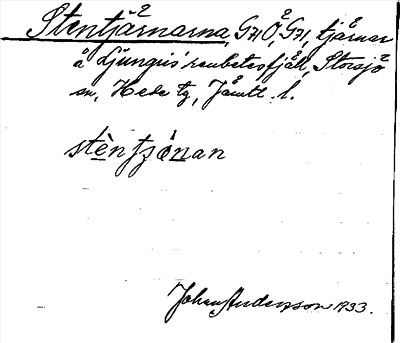 Stentjärnarna, G41Ö, G51, tjärnar
å Ljungris' renbetesfjäll, Storsjö
sn, Hede tg, Jämtl. l.
stèntjǻnan
Johan Andersson 1933.